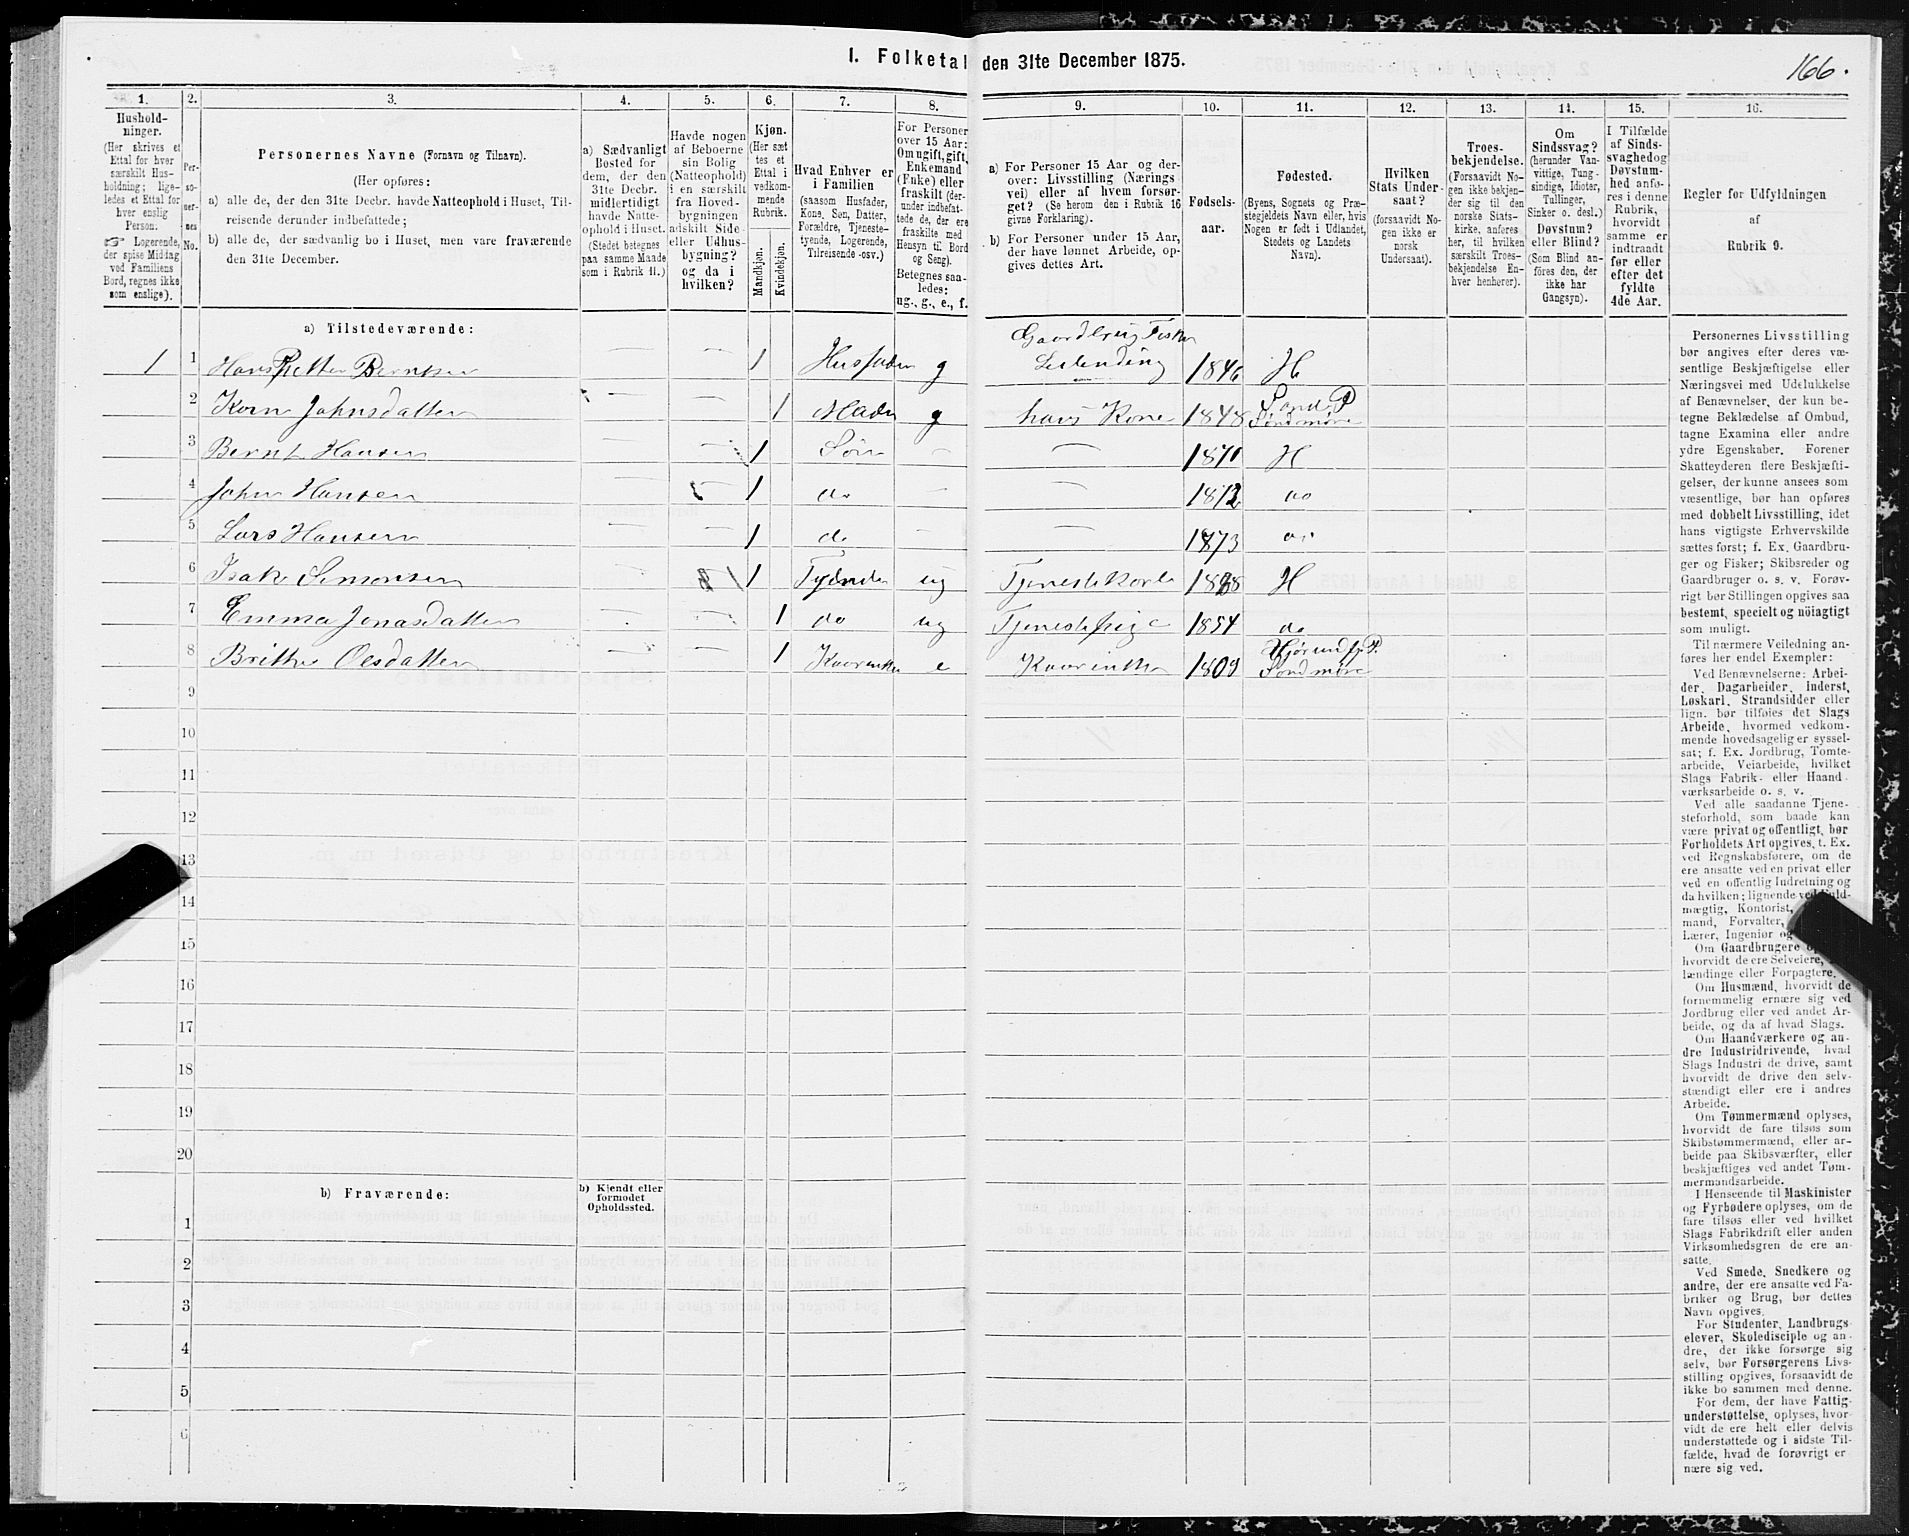 I. Folketal den 31te December 1875.
166.
1.
Husholdninger.
(Her skrives et
Ettal for hver
særskilt Husholdning; ligeledes et Ettal for
hver enslig
Person.
☞ Logerende,
der spise Middag
ved Familiens
Bord, regnes ikke
som enslige).
2.
Personernes
No.
3.
Personernes Navne (Fornavn og Tilnavn).
(Her opføres:
a) alle de, der den 31te Decbr. havde Natteophold i Huset, Tilreisende derunder indbefattede;
b) alle de, der sædvanlig bo i Huset, men vare fraværende
den 31te December.
4.
a) Sædvanligt
Bosted for
dem, der den
31te Decbr.
midlertidigt
havde Natteophold i Huset.
(Stedet betegnes
paa samme Maade
som i Rubrik 11.)
5.
Havde nogen
af Beboerne
sin Bolig
(Natteophold)
i en særskilt
fra Hovedbygningen
adskilt Side-
eller Udhusbygning?
og da i
hvilken?
6.
Kjøn.
(Her sættes et
Ettal i
vedkommende
Rubrik.
Mandkjøn.
Kvindekjøn.
7.
Hvad Enhver er
i Familien
(saasom Husfader,
Kone, Søn, Datter,
Forældre, Tjenestetyende, Logerende,
Tilreisende osv.)
8.
For Personer
over 15 Aar:
Om ugift, gift,
Enkemand
(Enke) eller
fraskilt (derunder indbefattede de, der ere
fraskilte med
Hensyn til Bord
og Seng).
Betegnes saaledes:
ug., g., e., f.
9.
a) For Personer 15 Aar og derover: Livsstilling (Næringsvei) eller af hvem forsørget? (Se herom den i Rubrik 16
givne Forklaring).
b) For Personer under 15 Aar,
der have lønnet Arbeide, opgives dettes Art.
10.
Fødselsaar.
11.
Fødested.
(Byens, Sognets og Præstegjeldets Navn eller, hvis
Nogen er født i Udlandet,
Stedets og Landets
Navn).
12.
Hvilken
Stats Undersaat?
(forsaavidt Nogen ikke er
norsk
Undersaat).
13.
Troesbekjendelse.
(Forsaavidt Nogen ikke bekjender sig til den
norske Statskirke, anføres
her, til hvilken
særskilt Troesbekjendelse Enhver henhører).
14.
Om
Sindssvag?
(herunder Vanvittige, Tungsindige, Idioter,
Tullinger,
Sinker o. desl.)
Døvstum?
eller Blind?
(Som Blind anføres den, der
ikke har
Gangsyn).
15.
I Tilfælde
af Sindssvaghed og
Døvstumhed anføres i denne
Rubrik,
hvorvidt
samme er
indtraadt
før eller
efter det
fyldte
4de Aar.
16.
Regler for Udfyldningen
af
Rubrik 9.
a) Tilstedeværende:
1 1 Hans Petter Berntsen 1 Husfader g Gaardbrug Fisker
Leilending 1846 H
2 Korn Johnsdatter 1 Mader g hans Kone 1848 Sand P
Søndmøre
3 Bernt Hansen 1 Søn 1871 H
4 John Hansen 1 do 1872 do
5 Lars Hansen 1 do 1873 do
6 Isak Simonsen 1 ug 1858 H
7 Emma Jonasdatter 1 do ug Tjenestepige 1854 do
8 Brithe Olsdatter 1 e 1809 Hjørundfj P.
Søndmøre
9
10
11
12
13
14
15
16
17
18
19
20
b) Fraværende:
b) Kjendt eller
formodet
Opholdssted.
1
2
3
4
5
6
Personernes Livsstilling
bør angives efter deres væsentlige Beskjæftigelse eller
Næringsvei med Udelukkelse
af Benævnelser, der kun betegne Beklædelse af Ombud,
tagne Examina eller andre
ydre Egenskaber. Forener
Skatteyderen flere Beskjæftigelser, der kunne ansees som
væsentlige, bør han opføres
med dobbelt Livsstilling, idet
hans vigtigste Erhvervskilde
sættes først; f. Ex. Gaardbruger og Fisker; Skibsreder og
Gaardbruger o. s. v. Forøvrigt bør Stillingen opgives saa
bestemt, specielt og nöiagtigt
som muligt.
Til nærmere Veiledning anføres her endel Exempler:
Ved Benævnelserne: Arbeider, Dagarbeider, Inderst,
Løskarl, Strandsidder eller
lign. bør tilføies det Slags
Arbeide, hvormed vedkommende hovedsagelig er sysselsat; f. Ex. Jordbrug, Tomtearbeide, Veiarbeide, hvilket
Slags Fabrik- eller Haandværksarbeide o. s. v.
Ved alle saadanne Tjenesteforhold, som baade kan
være privat og offentligt, bør
Forholdets Art opgives, t. Ex.
ved Regnskabsførere, om de
ere ansatte ved en privat eller
ved en offentlig Indretning og
da hvilken; lignende ved
Kontorist,
mand, Forvalter,
Lærer, Ingeniør og
Om Gaardbrugere
hvorvidt de ere Selveiere,
lændinge eller Forpagtere.
Om Husmænd, hvorvidt de
fornemmelig ernære sig ved
Jordbrug eller ved andet Arbeide, og da af hvad Slags.
Om Haandværkere og andre Industridrivende, hvad
Slags Industri de drive, samt
hvorvidt de drive den selvstændigt eller ere i andres
Arbeide.
Om Tømmermænd oplyses,
hvorvidt de fare tilsøs som
Skibstømmermænd, eller arbeide paa Skibsværfter, eller
beskjæftiges ved andet Tømmermandsarbeide.
I Henseende til Maskinister
og Fyrbødere oplyses, om de
fare tilsøs eller ved hvilket
Slags Fabrikdrift eller anden
Virksomhedsgren de ere ansatte.
Ved Smede, Snedkere og
andre, der ere ansatte ved Fabriker og Brug, bør dettes
Navn opgives.
For Studenter, Landbrugselever, Skoledisciple og andre, der ikke forsørge sig
selv, bør Forsørgerens Livsstilling opgives, forsaavidt de
ikke bo sammen med denne.
For dem, der have Fattigunderstøttelse, oplyses, hvorvidt de ere helt eller delvis
understøttede og i sidste Tilfælde, hvad de forøvrigt ernære sig ved.